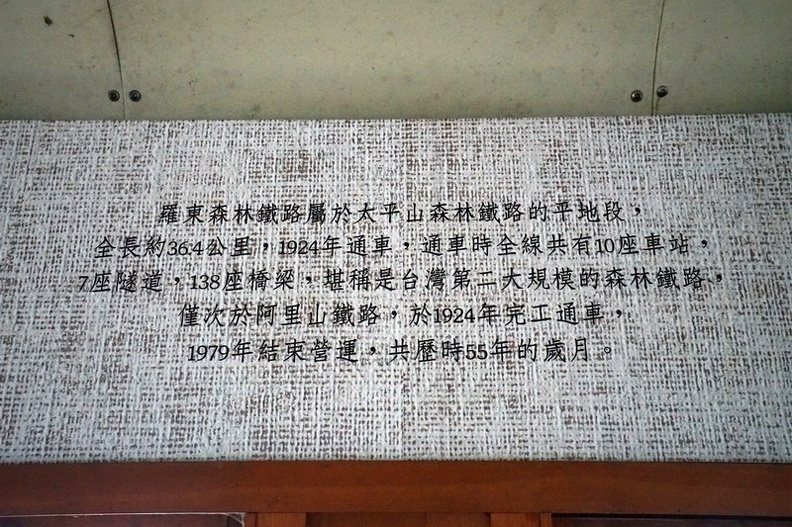 羅東森林鐵路屬於太平山森林鐵路的平地段，
全長約36.4公里，1924年通車，通車時全線共有10座車站，
7座隧道，138座橋梁，堪稱是台灣第二大規模的森林鐵路，
僅次於阿里山鐵路，於1924年完工通車，
1979年結束營運，共歷時55年的歲月。